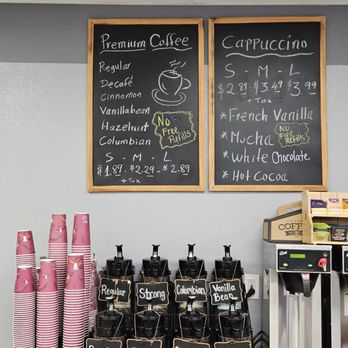 Premium Coffee
Regular
Decafé
Cinnamon
Vanillabean
Hazelnut
Columbian
No
Free
Refills
S - M - L
$1.89 - $2.29 - $2.89
+ Tax
Cappuccino
S - M - L
$2.89 $3.49 $3.99
+ Tax
* French Vanilla
* Mocha
* White Chocolate
* Hot Cocoa
No
Free
Refills
COFFEE
Regular
Strong
Columbian
Vanilla
Bean